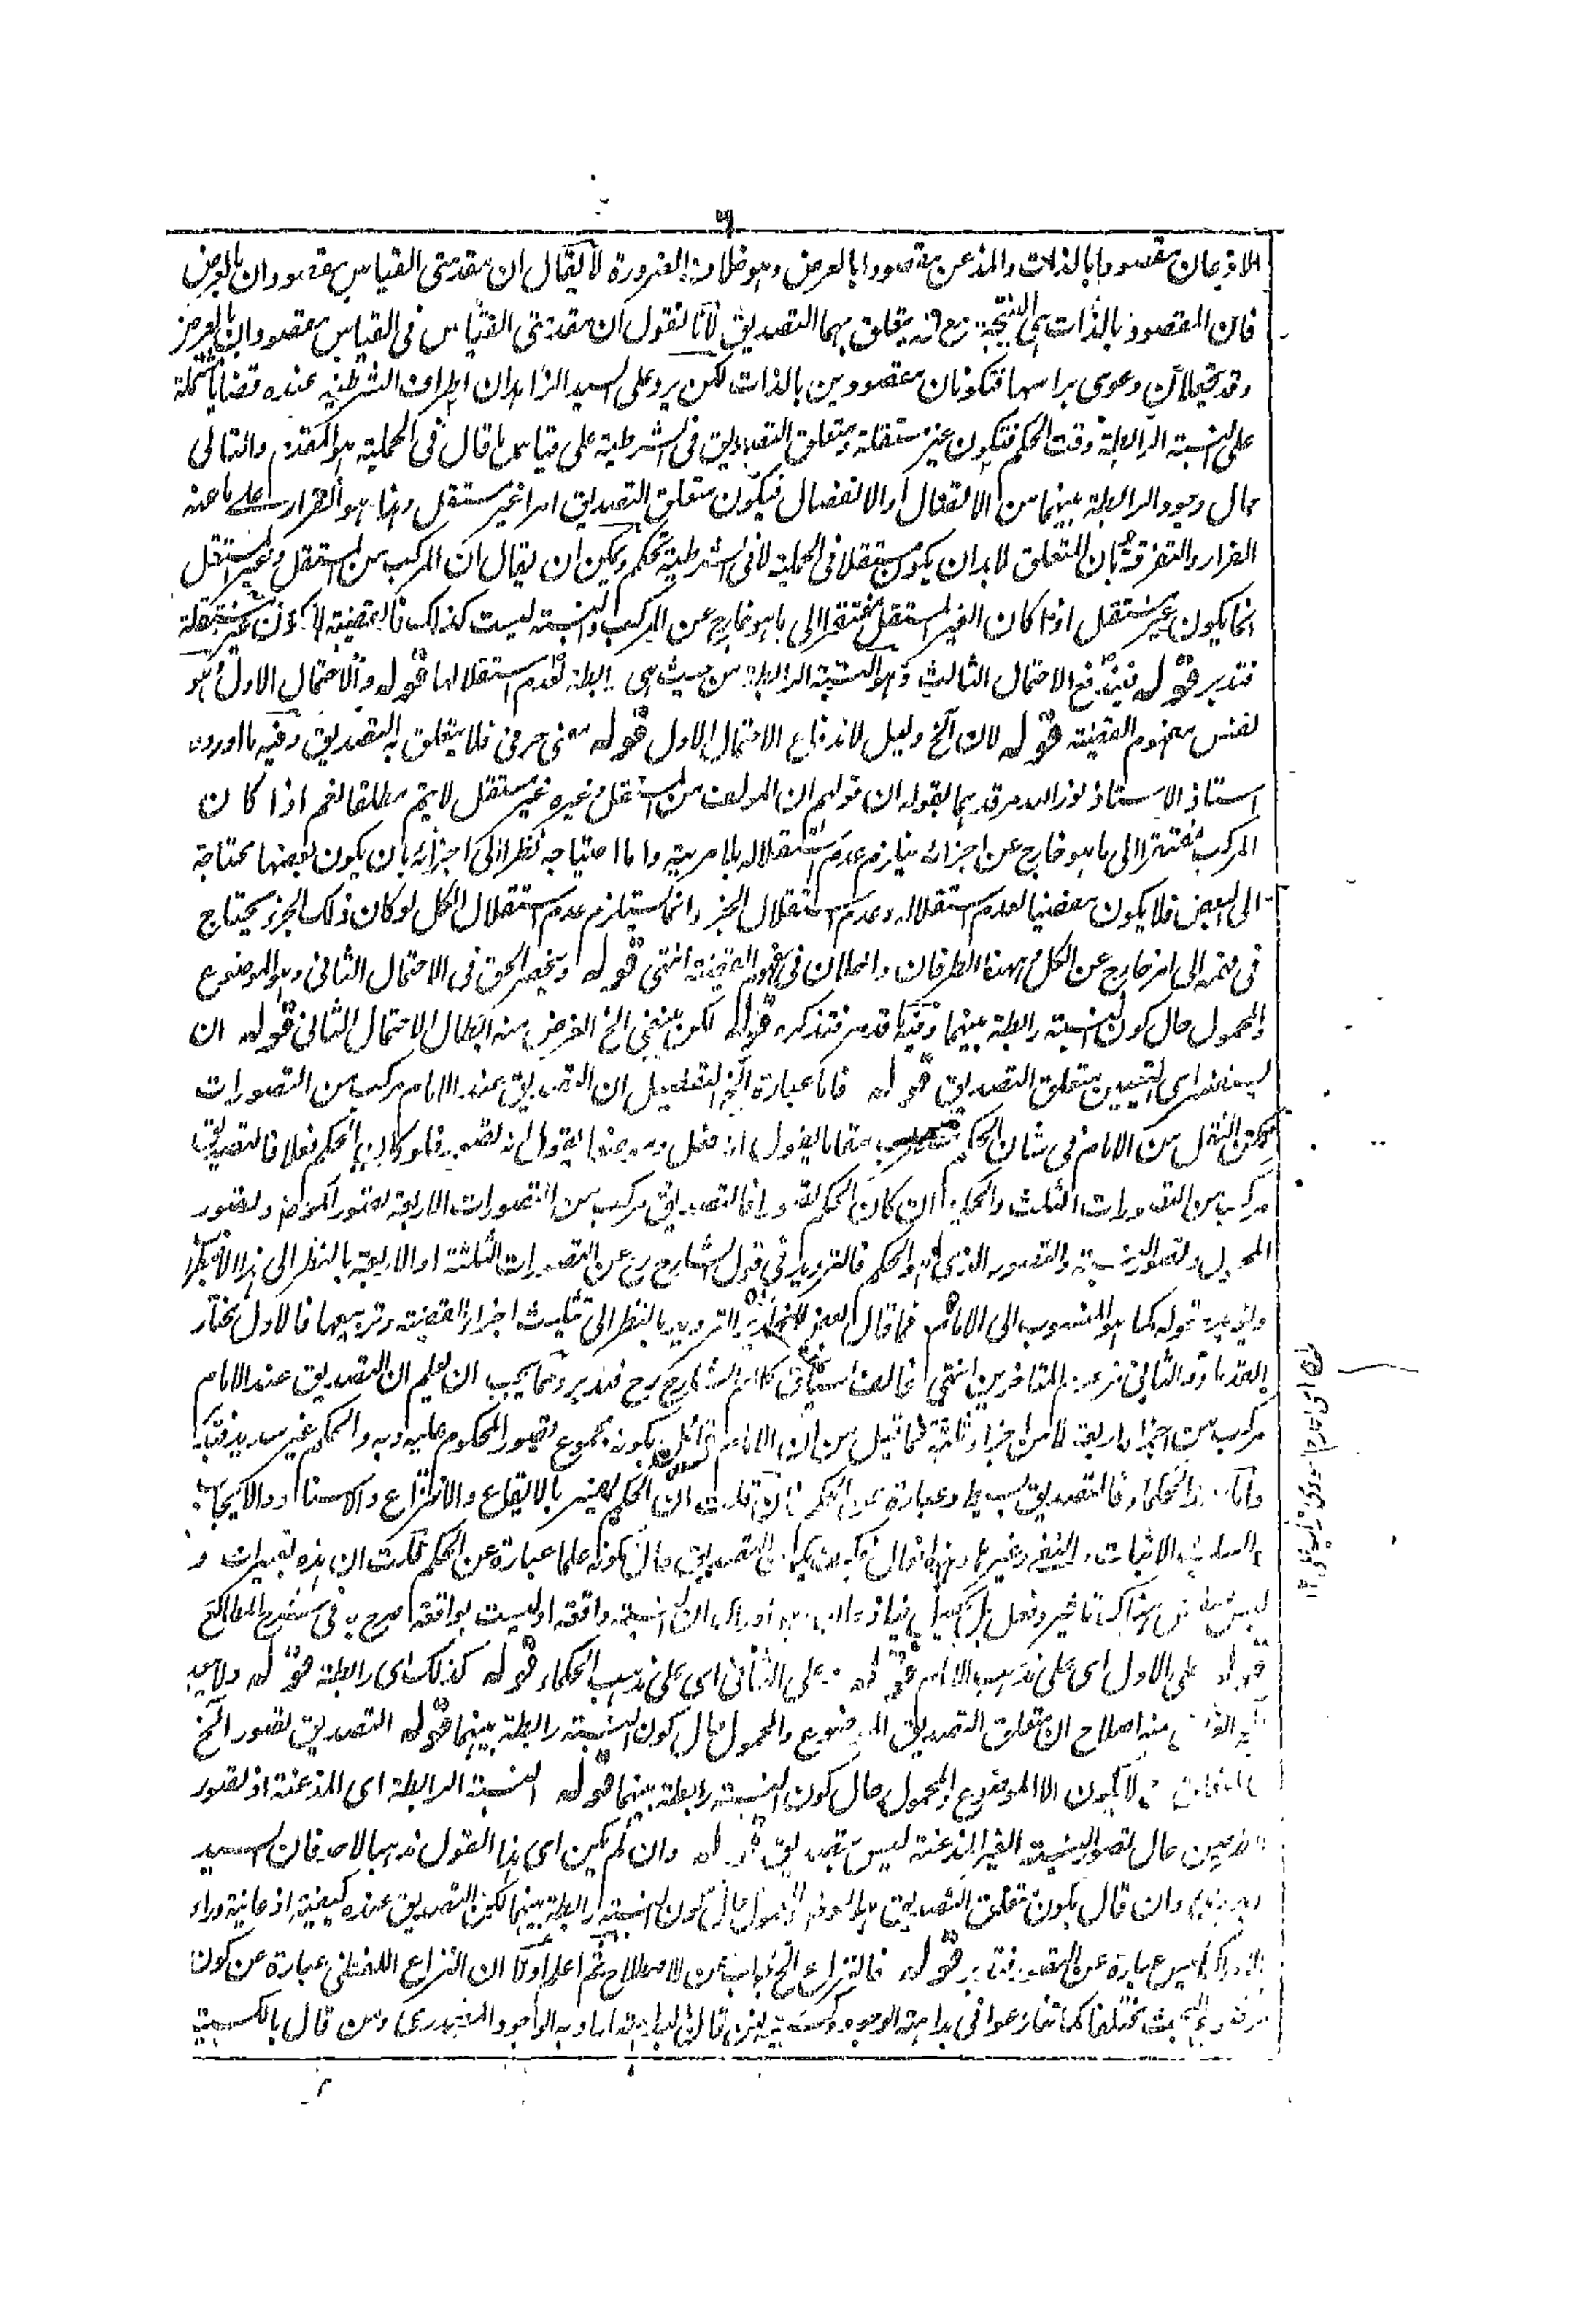 الاذعان مقصودا بالذات والمذعن مقصودا بالعرض وهو خلاف الضرورة لا يقال ان مقدمتى القياس مقصودان بالعرض
فان المقصود بالذات هى النتيجة مع انه يتعلق بهما التصديق لانا نقول ان مقدمتى القياس فى القياس مقصودان بالعرض
وقد تجعلان دعوى براسها فتكونان مقصودين بالذات لكن يرد على السيد الزاهد ان اطراف الشرطية عنده قضايا مشتملة
على النسبة الرابطة وقت الحكم فتكون غير مستقلة ومتعلق التصديق فى الشرطية على قياس ما قال فى الحملية هو المقدم والتالى
حال وجود الرابطة بينهما من الاتصال او الانفصال فيكون متعلق التصديق امرا غير مستقل وهذا هو القرار على ما عنه
الفرار والتفرقة بان المتعلق لابد ان يكون مستقلا فى الحملية لا فى الشرطية تحكم ويمكن ان يقال ان المركب من المستقل وغير المستقل
انما يكون غير مستقل اذا كان الغير المستقل مفتقرا الى ما هو خارج عن المركب والنسبة ليست كذلك فالقضية لا تكون غير مستقلة
فتدبر قوله فيندفع الاحتمال الثالث وهو النسبة الرابطة من حيث هى رابطة لعدم استقلالها قوله والاحتمال الاول هو
نفس مفهوم القضية قوله لان الخ دليل لاندفاع الاحتمال الاول قوله معنى حرفى فلا يتعلق به التصديق وفيه ما اورده
استاذ الاستاذ نور الله مرقدهما بقوله ان قولهم ان المولف من المستقل وغيره غير مستقل لا يتم مطلقا نعم اذا كان
المركب مفتقرا الى ما هو خارج عن اجزائه يلزم عدم استقلاله بلا مرية واما احتياجه نظرا الى اجزائه بان يكون بعضها محتاجة
الى البعض فلا يكون مفضيا لعدم استقلاله وعدم استقلال الجزء انما يستلزم عدم استقلال الكل لو كان ذلك الجزء يحتاج
فى فهمه الى امر خارج عن الكل وههنا الطرفان داخلان فى مفهوم القضية انتهى قوله وينحصر الحق فى الاحتمال الثانى وهو الموضوع
والمحمول حال كون النسبة رابطة بينهما وفيه ما قد مر فتذكره قوله لكن ينبغى الخ الغرض منه ابطال الاحتمال الثانى قوله ان
لم يعتبر اى التعيين متعلق التصديق قوله فاما عبارة الخ التفصيل ان التصديق عند الامام مركب من التصورات
لكن النقل من الامام فى شان الحكم مقاما يقول انه فعل و بعضها يقول انه تصور فلو كان الحكم فعلا فالتصديق
مركب من التصورات الثلث والحكم ان كان ادراكا فالتصديق مركب من التصورات الاربعة تصور الموضوع وتصور
المحمول وتصور النسبة والتصور الذى هو الحكم فالترديد فى قول الشارح رح عن التصورات الثلثة او الاربعة بالنظر الى هذا الاختلاف
ويؤيده قوله كما هو المنسوب الى الامام فما قال بعض الترديد بالنظر الى تثليث اجزاء القضية وتربيعها فالاول مختار
القدماء والثانى مزعوم المتاخرين انتهى مخالف لسياق كلام الشارح رح فتدبر ومما يجب ان يعلم ان التصديق عند الامام
مركب من اجزاء اربعة لا من اجزاء ثلثة فما قيل من ان الامام قائل بكونه مجموع تصور المحكوم عليه وبه والحكم غير سديد فتدبر
واما عند الحكماء فالتصديق بسيط وعبارة عن الحكم فان قلت ان الحكم يفسر بالايقاع والانتزاع والاسناد والايجاب
والسلب والاثبات والنفى وغيرها وهذه افعال فكيف يكون التصديق حال كونه علما عبارة عن الحكم قلت ان هذه تعبيرات و
ليس للنفس هناك تاثير وفعل بل ادراك ان النسبة واقعة او ليست بواقعة صرح به فى شرح المطالع
قوله على الاول اى على مذهب الامام قوله وعلى الثانى اى على مذهب الحكماء قوله كذلك اى رابطة قوله ولا يبعد
منه اصلاح ان متعلق التصديق الموضوع والمحمول حال كون النسبة رابطة بينهما قوله التصديق تصور الخ
لا يكون الا الموضوع والمحمول حال كون النسبة رابطة بينهما قوله النسبة الرابطة اى المذعنة اذ تصور
الطرفين حال تصور النسبة الغير المذعنة ليس بتصديق قوله وان لم يكن اى هذا القول مذهبا لاحد فان السيد
وان قال بكون متعلق التصديق هو الموضوع والمحمول حال كون النسبة رابطة بينهما لكن التصديق عنده كيفية اذعانية وراء
الادراك ليس عبارة عن التصور فتدبر قوله فالنزاع الخ جواب عن الاصطلاح ثم اعلم اولا ان النزاع اللفظى عبارة عن كون
مختلفا كما تنازعوا فى بداهة الوجود وكسبيته فمن قال بالبداهة اراد به الوجود المصدرى ومن قال بالكسبية